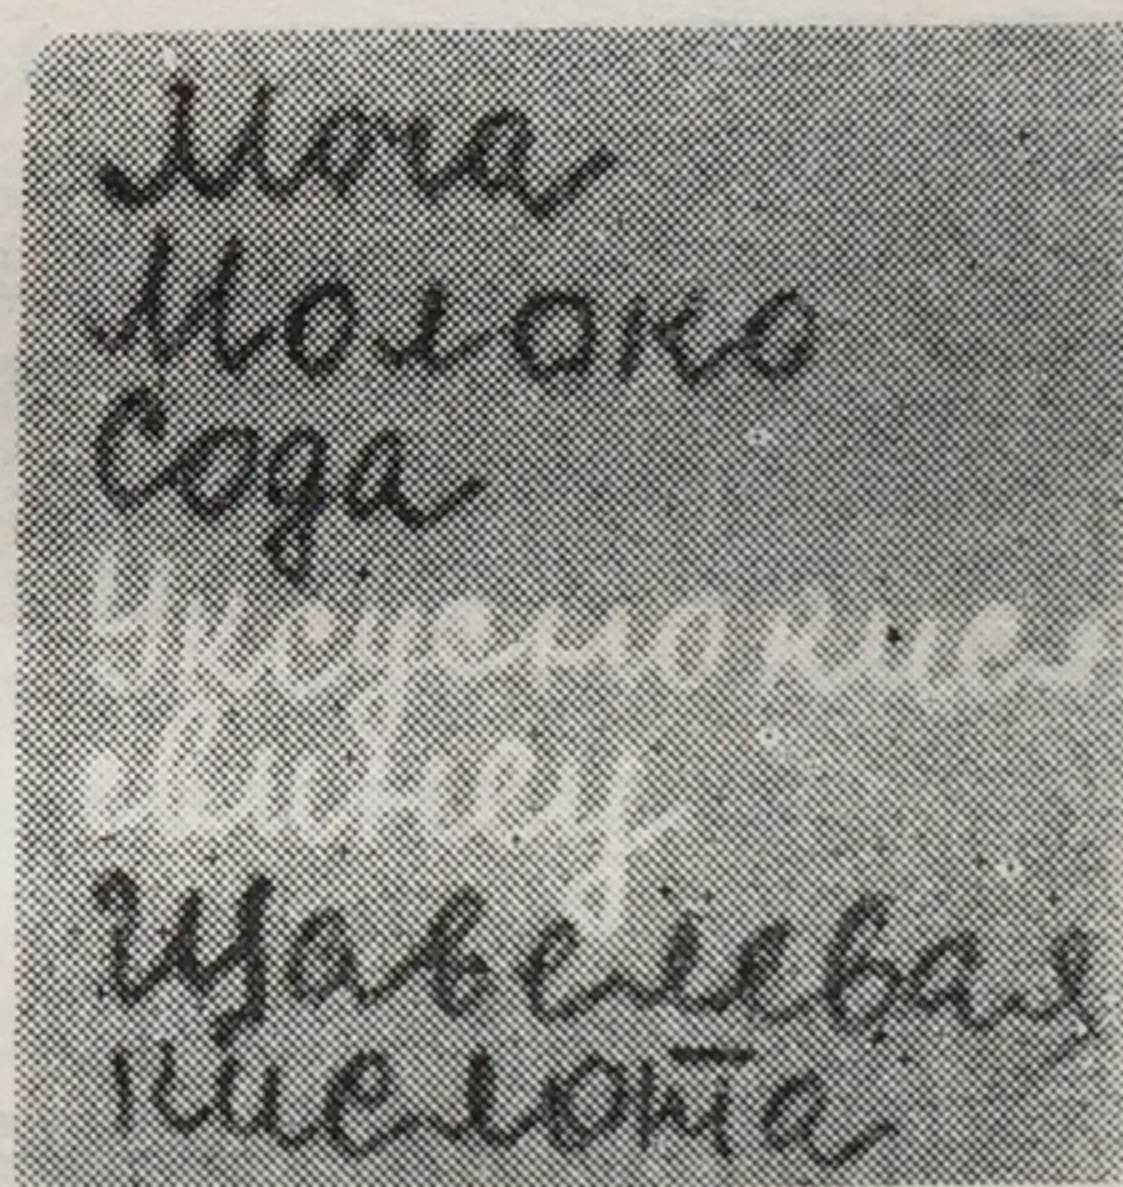 Моча
Молоко
Сода
Уксуснокисл
свинец
Щавелевая
кислота